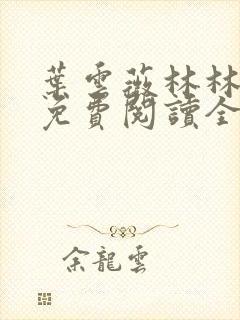 葉雲薇林林
免費閱讀全
余龍雲